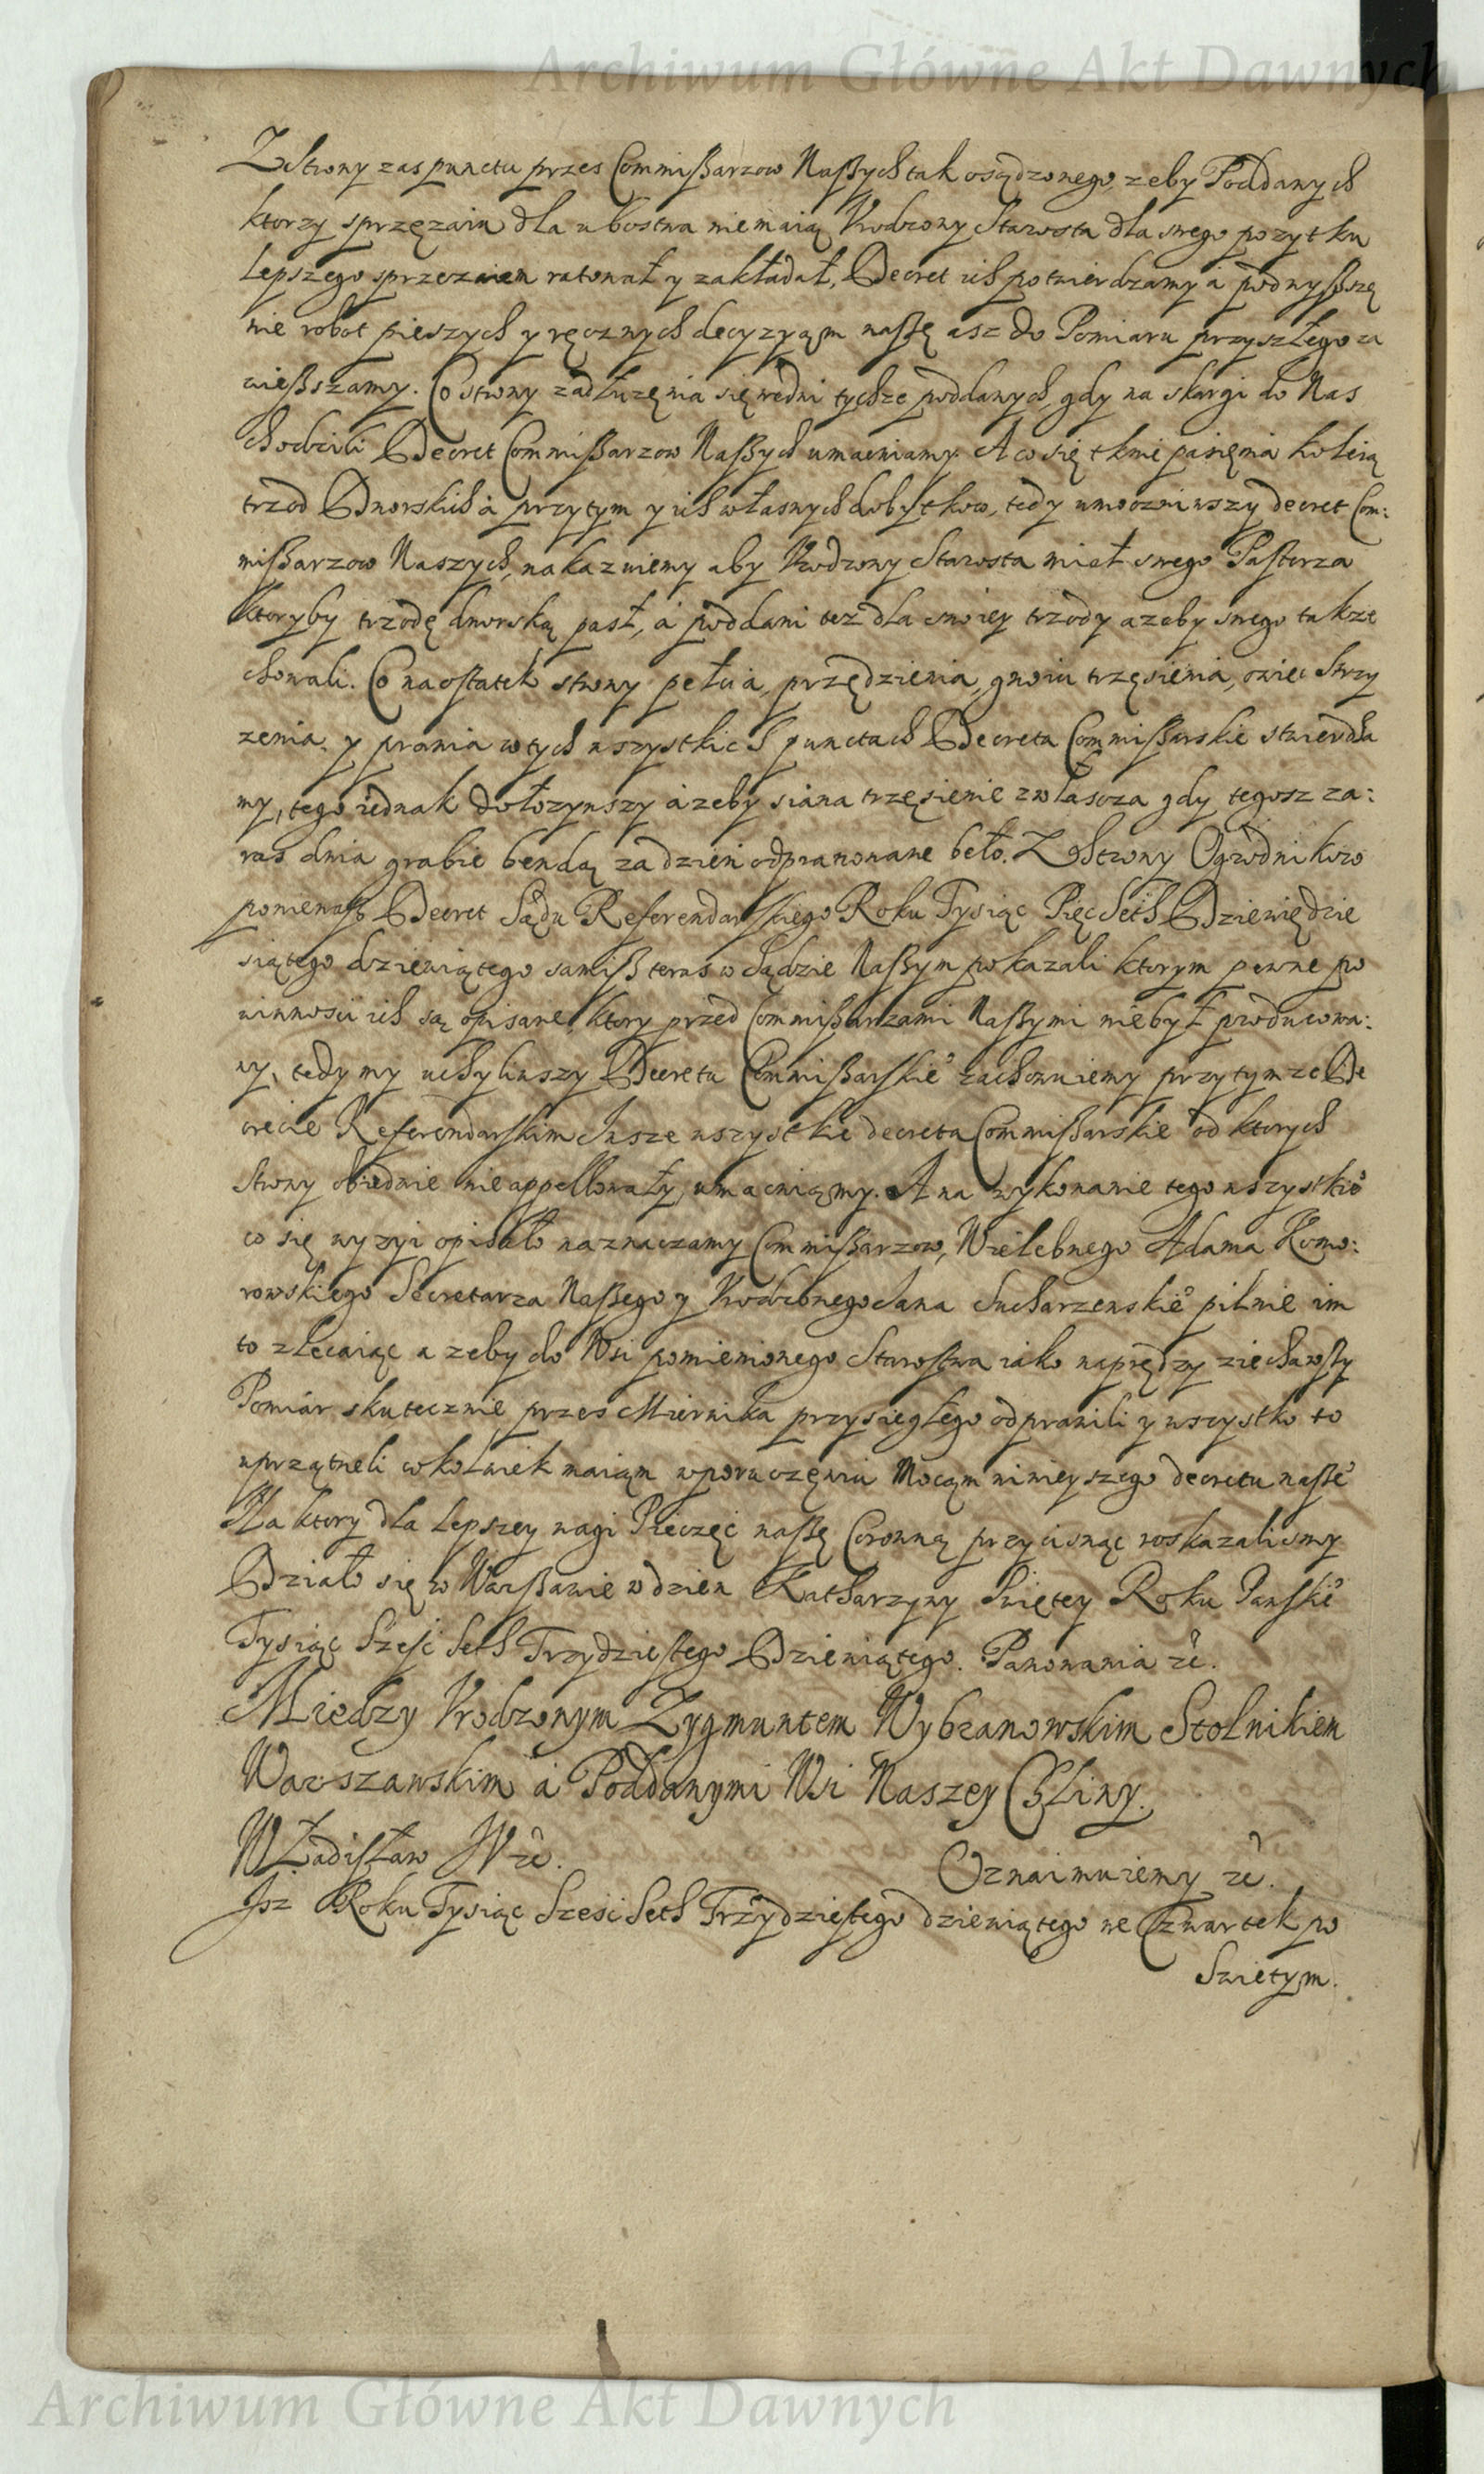 Archiwum Główne Akt Dawnych
Z Strony zas punctu przes Commißarzow Naßych tak osądzonego, zeby Poddanych
ktorzy sprzęzaiu dla ubostwa nie maią Vrodzony Starosta dla swego pozytku
lepszego sprzezaiem ratował y zakładał, Decret ich potwierdzamy á podwyßszę
nie robot pieszych y ręcznych decyzyąm naßę asz do Pomiaru przyszłego za
wießszamy. Co strony zadłuzęnia się wedni tychze poddanych, gdy na skargi do Nas
chodzili Decret Commißarzow Naßych umacniamy. A co się tknie pasięnia koleią
trzod Dworskich á przytym y ich własnych dobytkow, tedy umocniwszy decret Com:
mißarzow Naszych, nakazuiemy aby Vrodzony Starosta miał swego Pasterza
ktoryby trzodę dworską pasł, á poddani tez dla swoiey trzody azeby swego takze
chowali. Co na ostatek strony pełcia, przędzienia, gnoiu trzęsienia, owiec strzy
zenia, y prania w tych wszystkich punctach Decreta Commißarskie stwierdza
my, tego iednak dołozywszy ázeby siana trzęsienie zwłascza gdy tegosz za:
ras dnia grabie bendą za dzień odprawowane beło. Z Strony Ogrodnikow
poniewasz Decret Sądu Referendarskiego Roku Tysiąc Pięc Seth Dziewiędzie
siątego dziewiątego samiß teras w Sądzie Naßym pokazali ktorym pewne po
winnosci ich są opisane, ktory przed Commißarzami Naßymi niebył producowa:
ny, tedy my uchyliwszy Decreta Commißarskie° zachowuiemy przytymze De
crecie Referendarskim Insze wszystkie decreta Commißarskie od ktorych
Strony obiedwie nie appellowały, umacniąmy. A na wykonanie tego wszystkie°
co się wyzyi opisało naznaczamy Commißarzow, Wielebnego Adama Komo:
rowskiego Secretarza Naßego y Vrodzonego Jana Sucharzewskie° pilnie im
to zlecaiąc a zeby do Wsi pomienionego Starostwa iako naprędzy ziechawßy
Pomiár skutecznie przes Miernika przysięgłego odprawili y wszystko to
uprzątneli cokolwiek maiąm w poruczęniu Mocąm ninieyszego decretu naße°
Na ktory dla lepszey wagi Pieczęć naßę Coronną przycisnąc roskazalismy
Działo się w Warßawie w dzien Katharzyny Swiętey Roku Panskie°
Tysiąc Szesc Seth Trzydziestego Dziewiątego. Panowania etc.
Miedzy Vrodzonym Zygmuntem Wybranowskim Stolnikiem
Warszawskim á Poddanymi Wsi Naszey
Władisław IV etc.
Oznaimuiemy etc.
Isz Roku Tysiąc Szesc Seth Trzydziestego dziewiątego we Czwartek po
Swietym.
Archiwum Główne Akt Dawnych